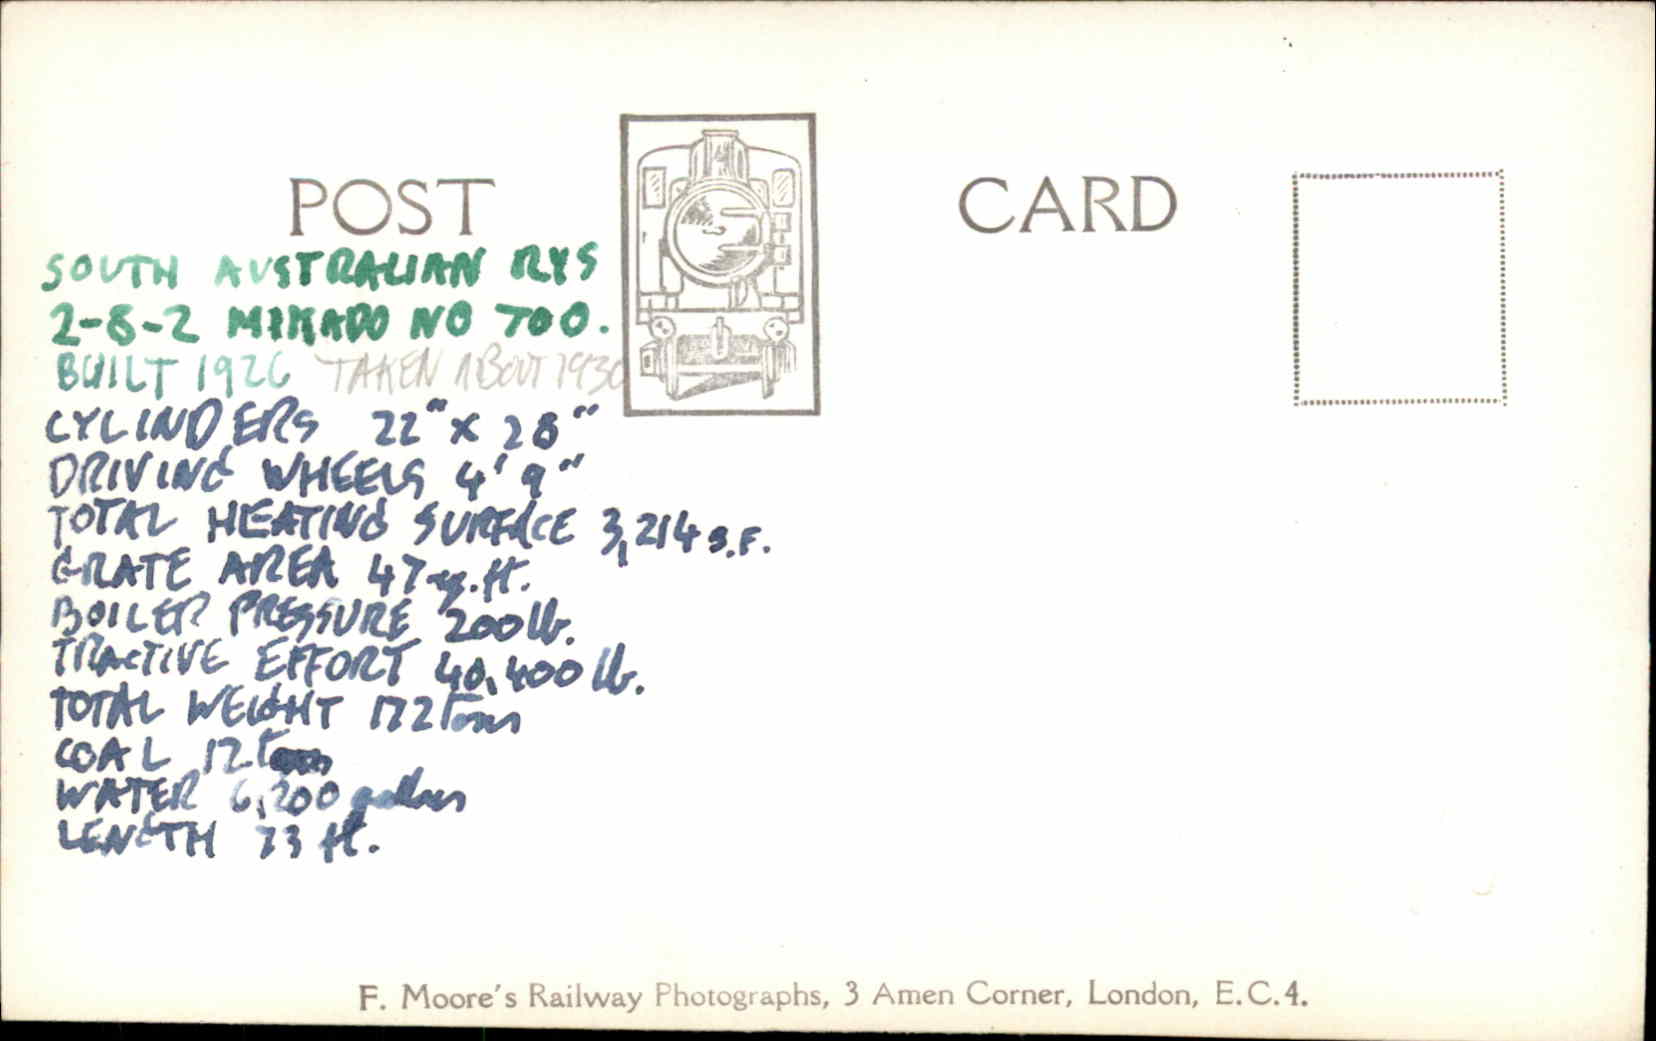 POST CARD
SOUTH AUSTRALIAN RYS
2-8-2 MIKADO NO 700.
BUILT 1926 TAKEN ABOUT 1930
CYLINDERS 22" x 28"
DRIVING WHEELS 4' 9"
TOTAL HEATING SURFACE 3,214 S.F.
GRATE AREA 47 sq. ft.
BOILER PRESSURE 200 lb.
TRACTIVE EFFORT 40,400 lb.
TOTAL WEIGHT 172 Tons
COAL 12 Tons
WATER 6,200 gallons
LENGTH 73 ft.
F. Moore's Railway Photographs, 3 Amen Corner, London, E.C.4.